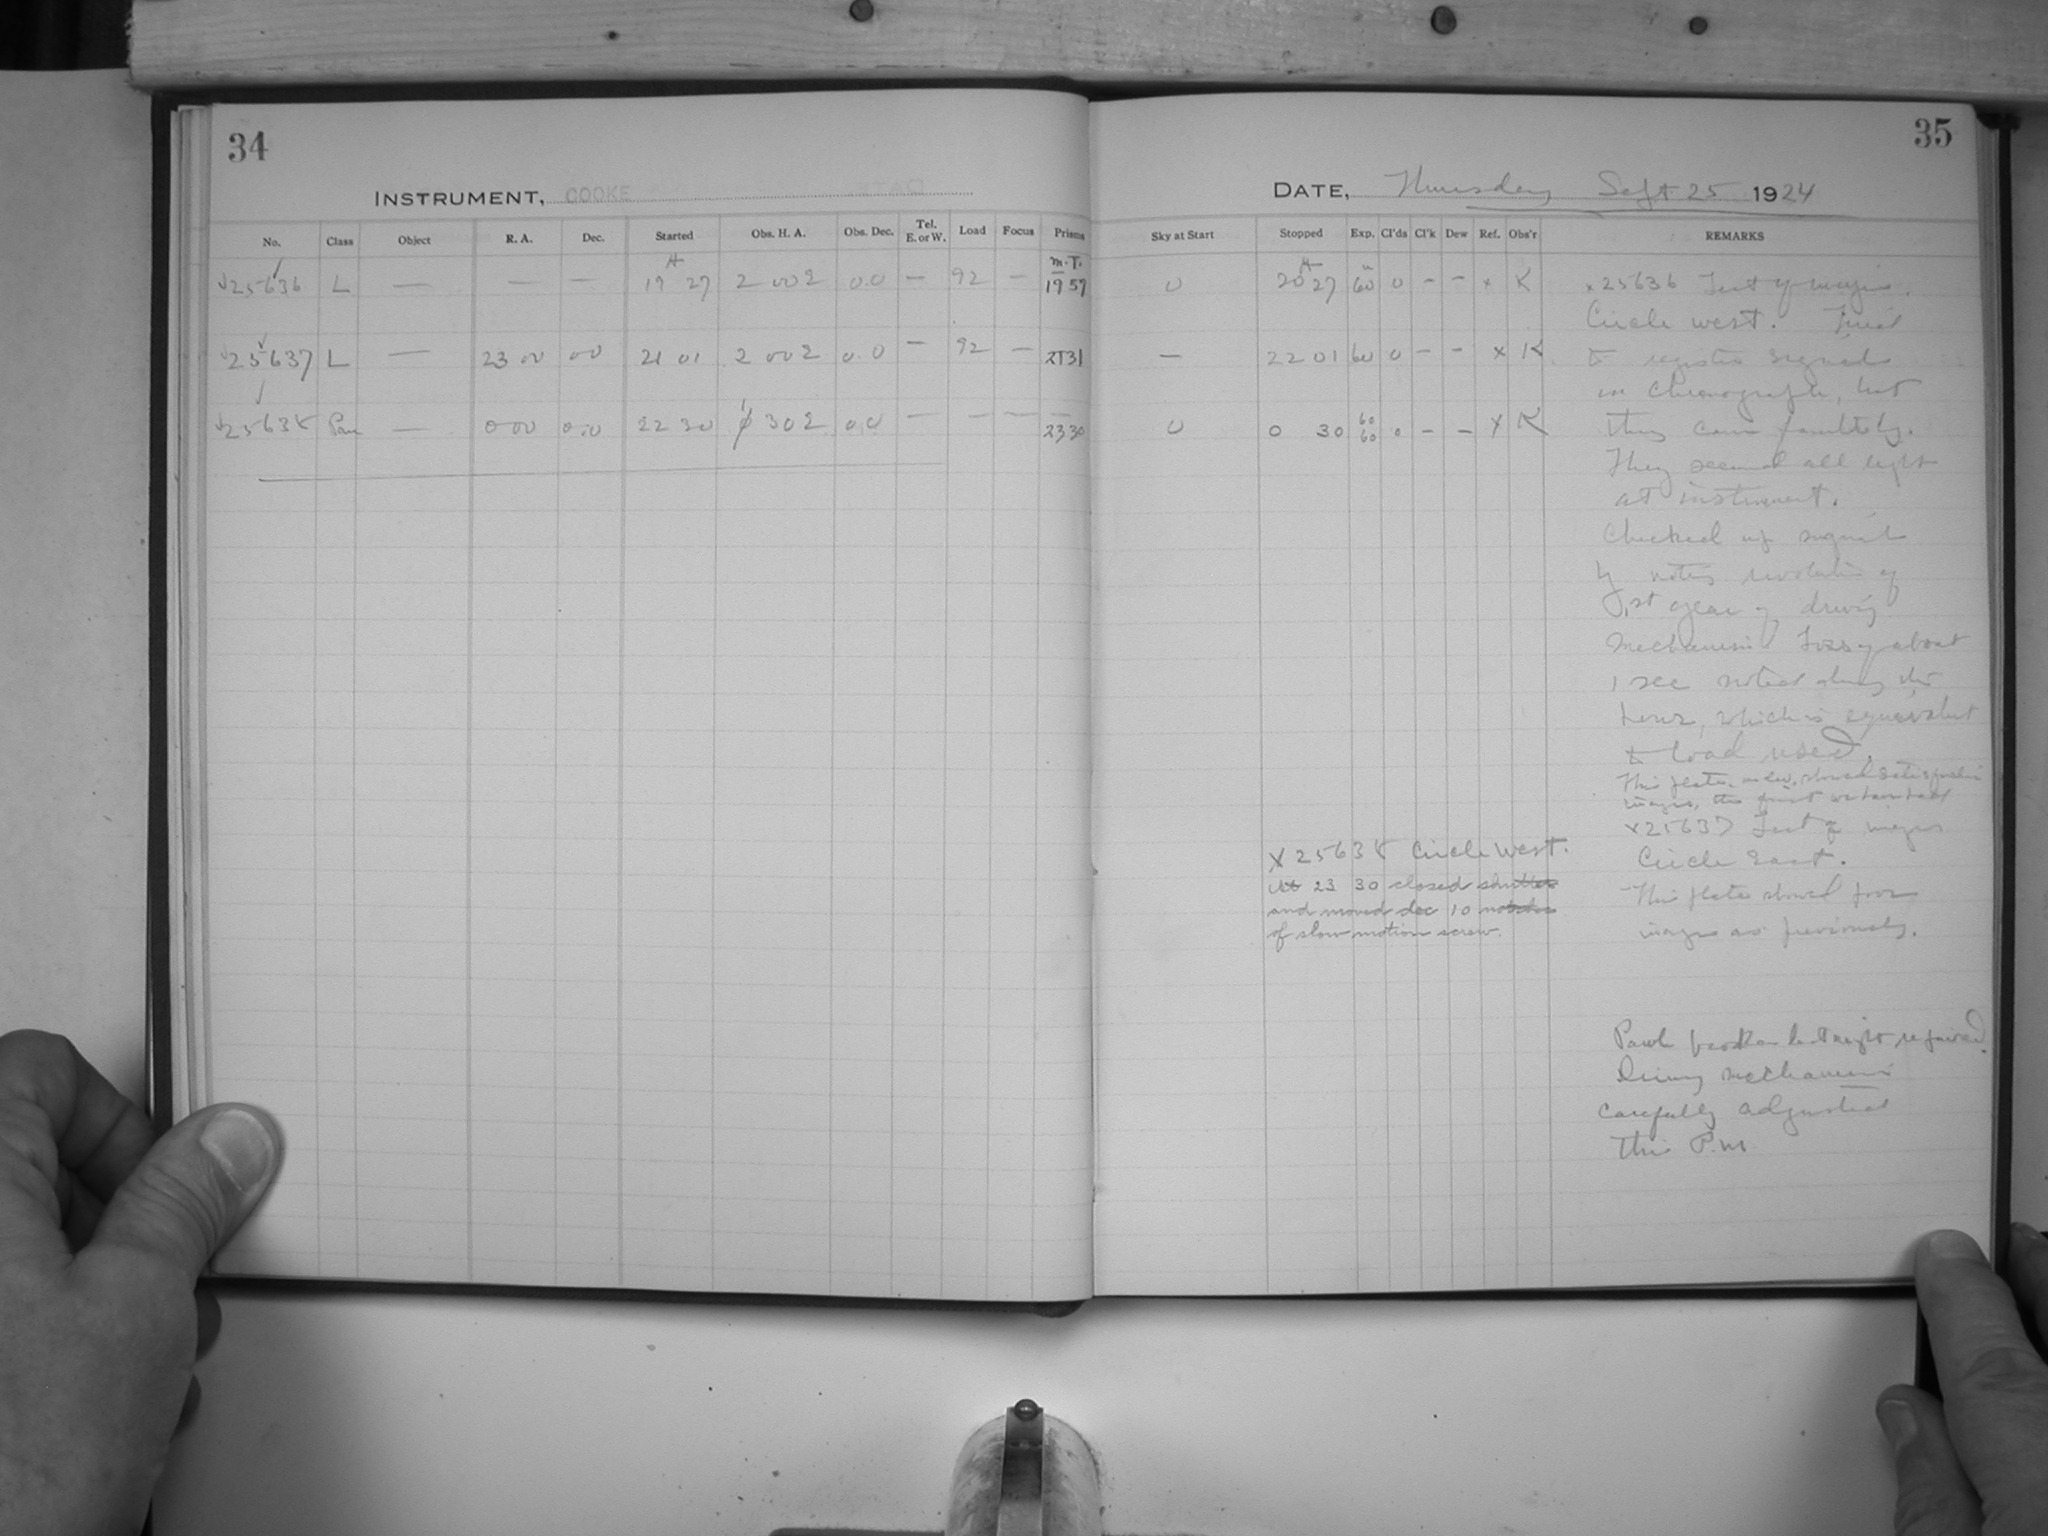 34
INSTRUMENT, COOKE
No. Class Object R. A. Dec. Started Obs. H. A. Obs. Dec. Tel. E. or W. Load Focus Prisms
H M.T.
25636 L — — — 19 27 2 00 2 0.0 — 92 — 19 57
25637 L — 23 00 00 21 01 2 00 2 0.0 — 92 — 2131
25638 Pan — 0 00 0.0 22 30 1 30 2 0.0 — — — — 23 30
35
DATE, Thursday Sept 25 1924
Sky at Start Stopped Exp. Cl'ds Cl'k Dew Ref. Obs'r REMARKS
0 20 27 60 0 — — x K
— 22 01 60 0 — — x K
0 0 30 60 60 0 — — x K
x 25636 Test of images.
Circle west. Tried
to register signals
on chronograph, but
they came faultily.
They seemed all right
at instrument.
Checked up signals
by noting revolution of
1st gear of driving
mechanism Loss of about
1 sec noted during the
hour, which is equivalent
to load used.
This plate, showed satisfactory
images, the first obtained
x 25637 Test of images
Circle East.
This plate showed poor
images as previously.
x 25638 Circle West.
At 23 30 closed shutter
and moved dec 10 notches
of slow motion screw.
Pawl broken last night repaired.
Driving mechanism
carefully adjusted
this P.M.